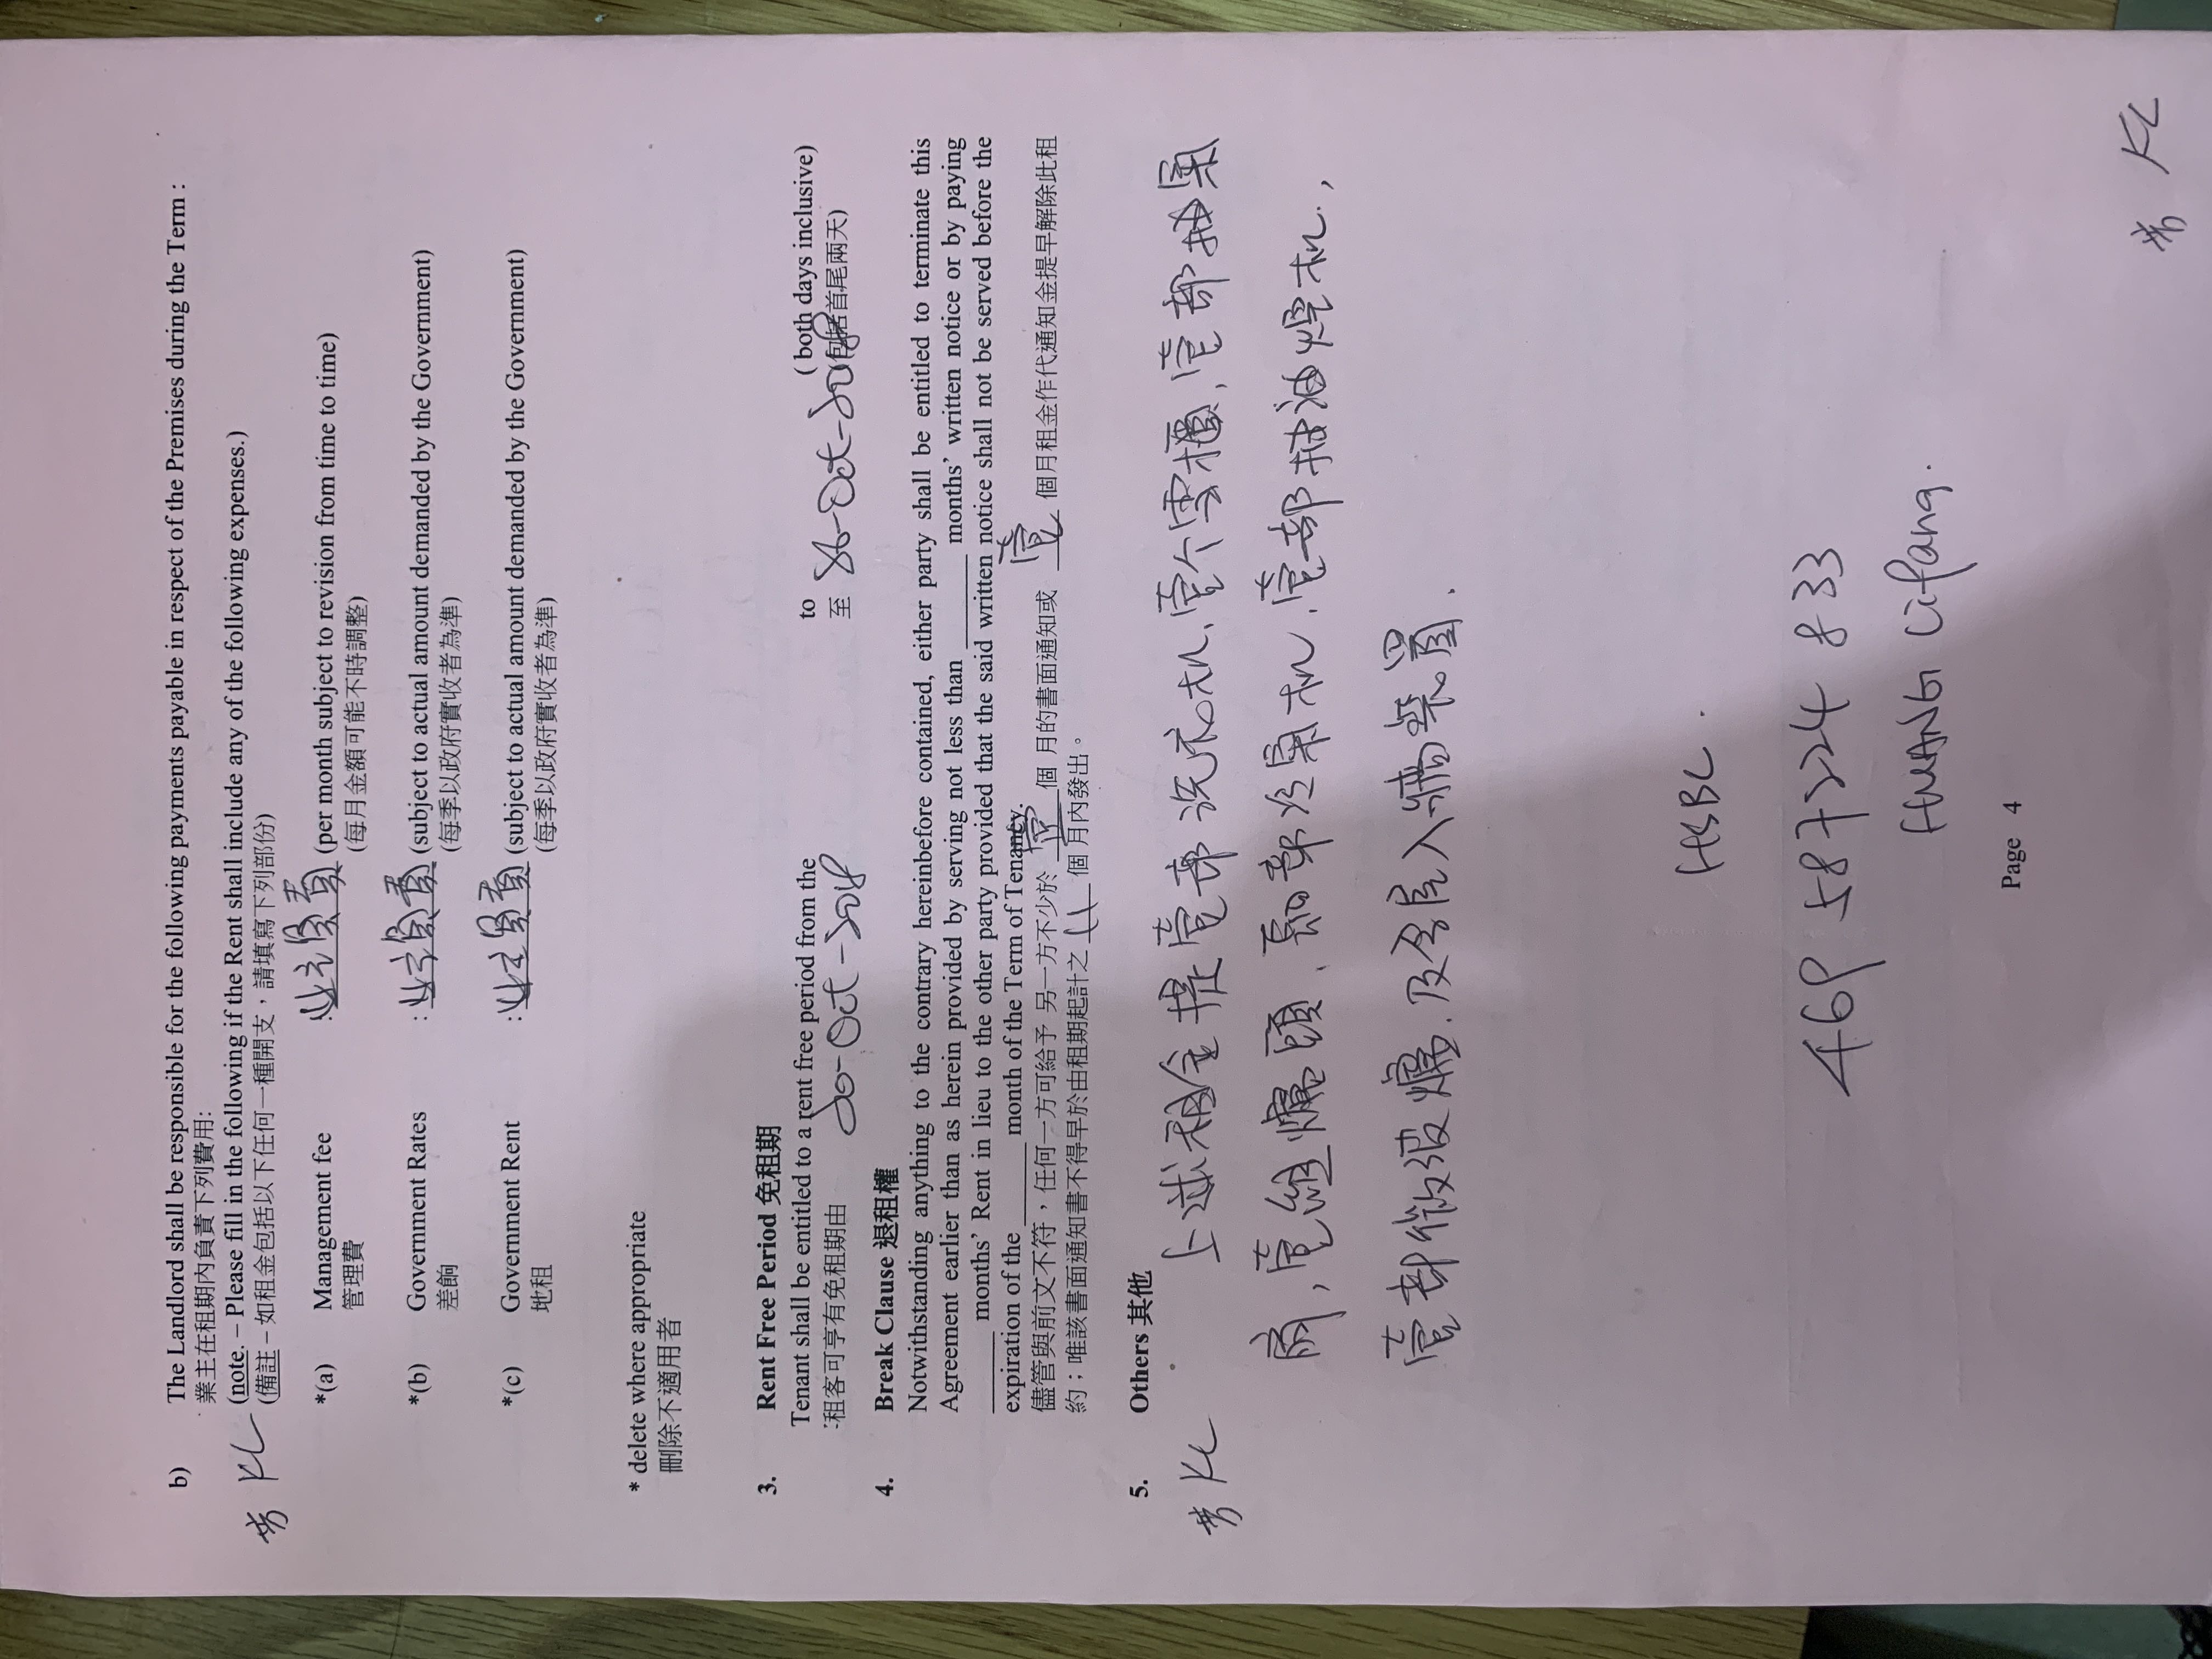 b) The Landlord shall be responsible for the following payments payable in respect of the Premises during the Term :
業主在租期內負責下列費用:
(note. – Please fill in the following if the Rent shall include any of the following expenses.)
(備註 – 如租金包括以下任何一種開支，請填寫下列部份)
KL
*(a) Management fee : 業主負責 (per month subject to revision from time to time)
管理費 (每月金額可能不時調整)
*(b) Government Rates : 業主負責 (subject to actual amount demanded by the Government)
差餉 (每季以政府實收者為準)
*(c) Government Rent : 業主負責 (subject to actual amount demanded by the Government)
地租 (每季以政府實收者為準)
* delete where appropriate
刪除不適用者
3. Rent Free Period 免租期
Tenant shall be entitled to a rent free period from the to (both days inclusive)
租客可享有免租期由 至 (包括首尾兩天)
4. Break Clause 退租權
Notwithstanding anything to the contrary hereinbefore contained, either party shall be entitled to terminate this
Agreement earlier than as herein provided by serving not less than ______ months' written notice or by paying
______ months' Rent in lieu to the other party provided that the said written notice shall not be served before the
expiration of the ______ month of the Term of Tenancy.
儘管與前文不符，任何一方可給予 另一方不少於 壹 個 月的書面通知或 壹 個月租金作代通知金提早解除此租
約；唯該書面通知書不得早於由租期起計之 11 個 月內發出。
5. Others 其他
KL
上述租金 壹部洗衣机、壹个雪櫃、壹部抽氣
扇，壹組爐頭、 部冷氣机、壹部抽油煙机,
壹部微波爐.及 入牆 置.
HSBC.
469 587224 833
HUANG Lifang.
KL
Page 4